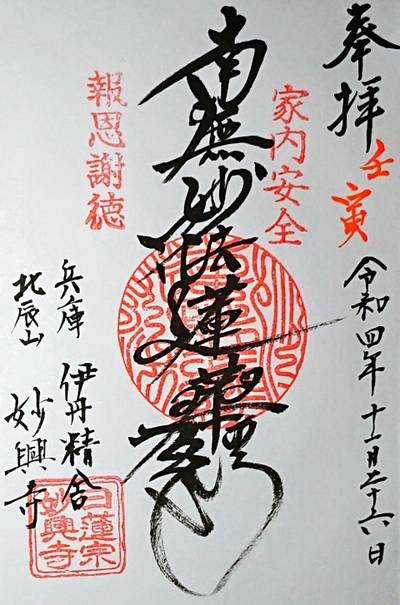 奉拝
壬寅
令和四年十一月二十六日
家内安全
南無妙法蓮華経
報恩謝徳
兵庫 伊丹精舎
北辰山 妙興寺
日蓮宗
妙興寺